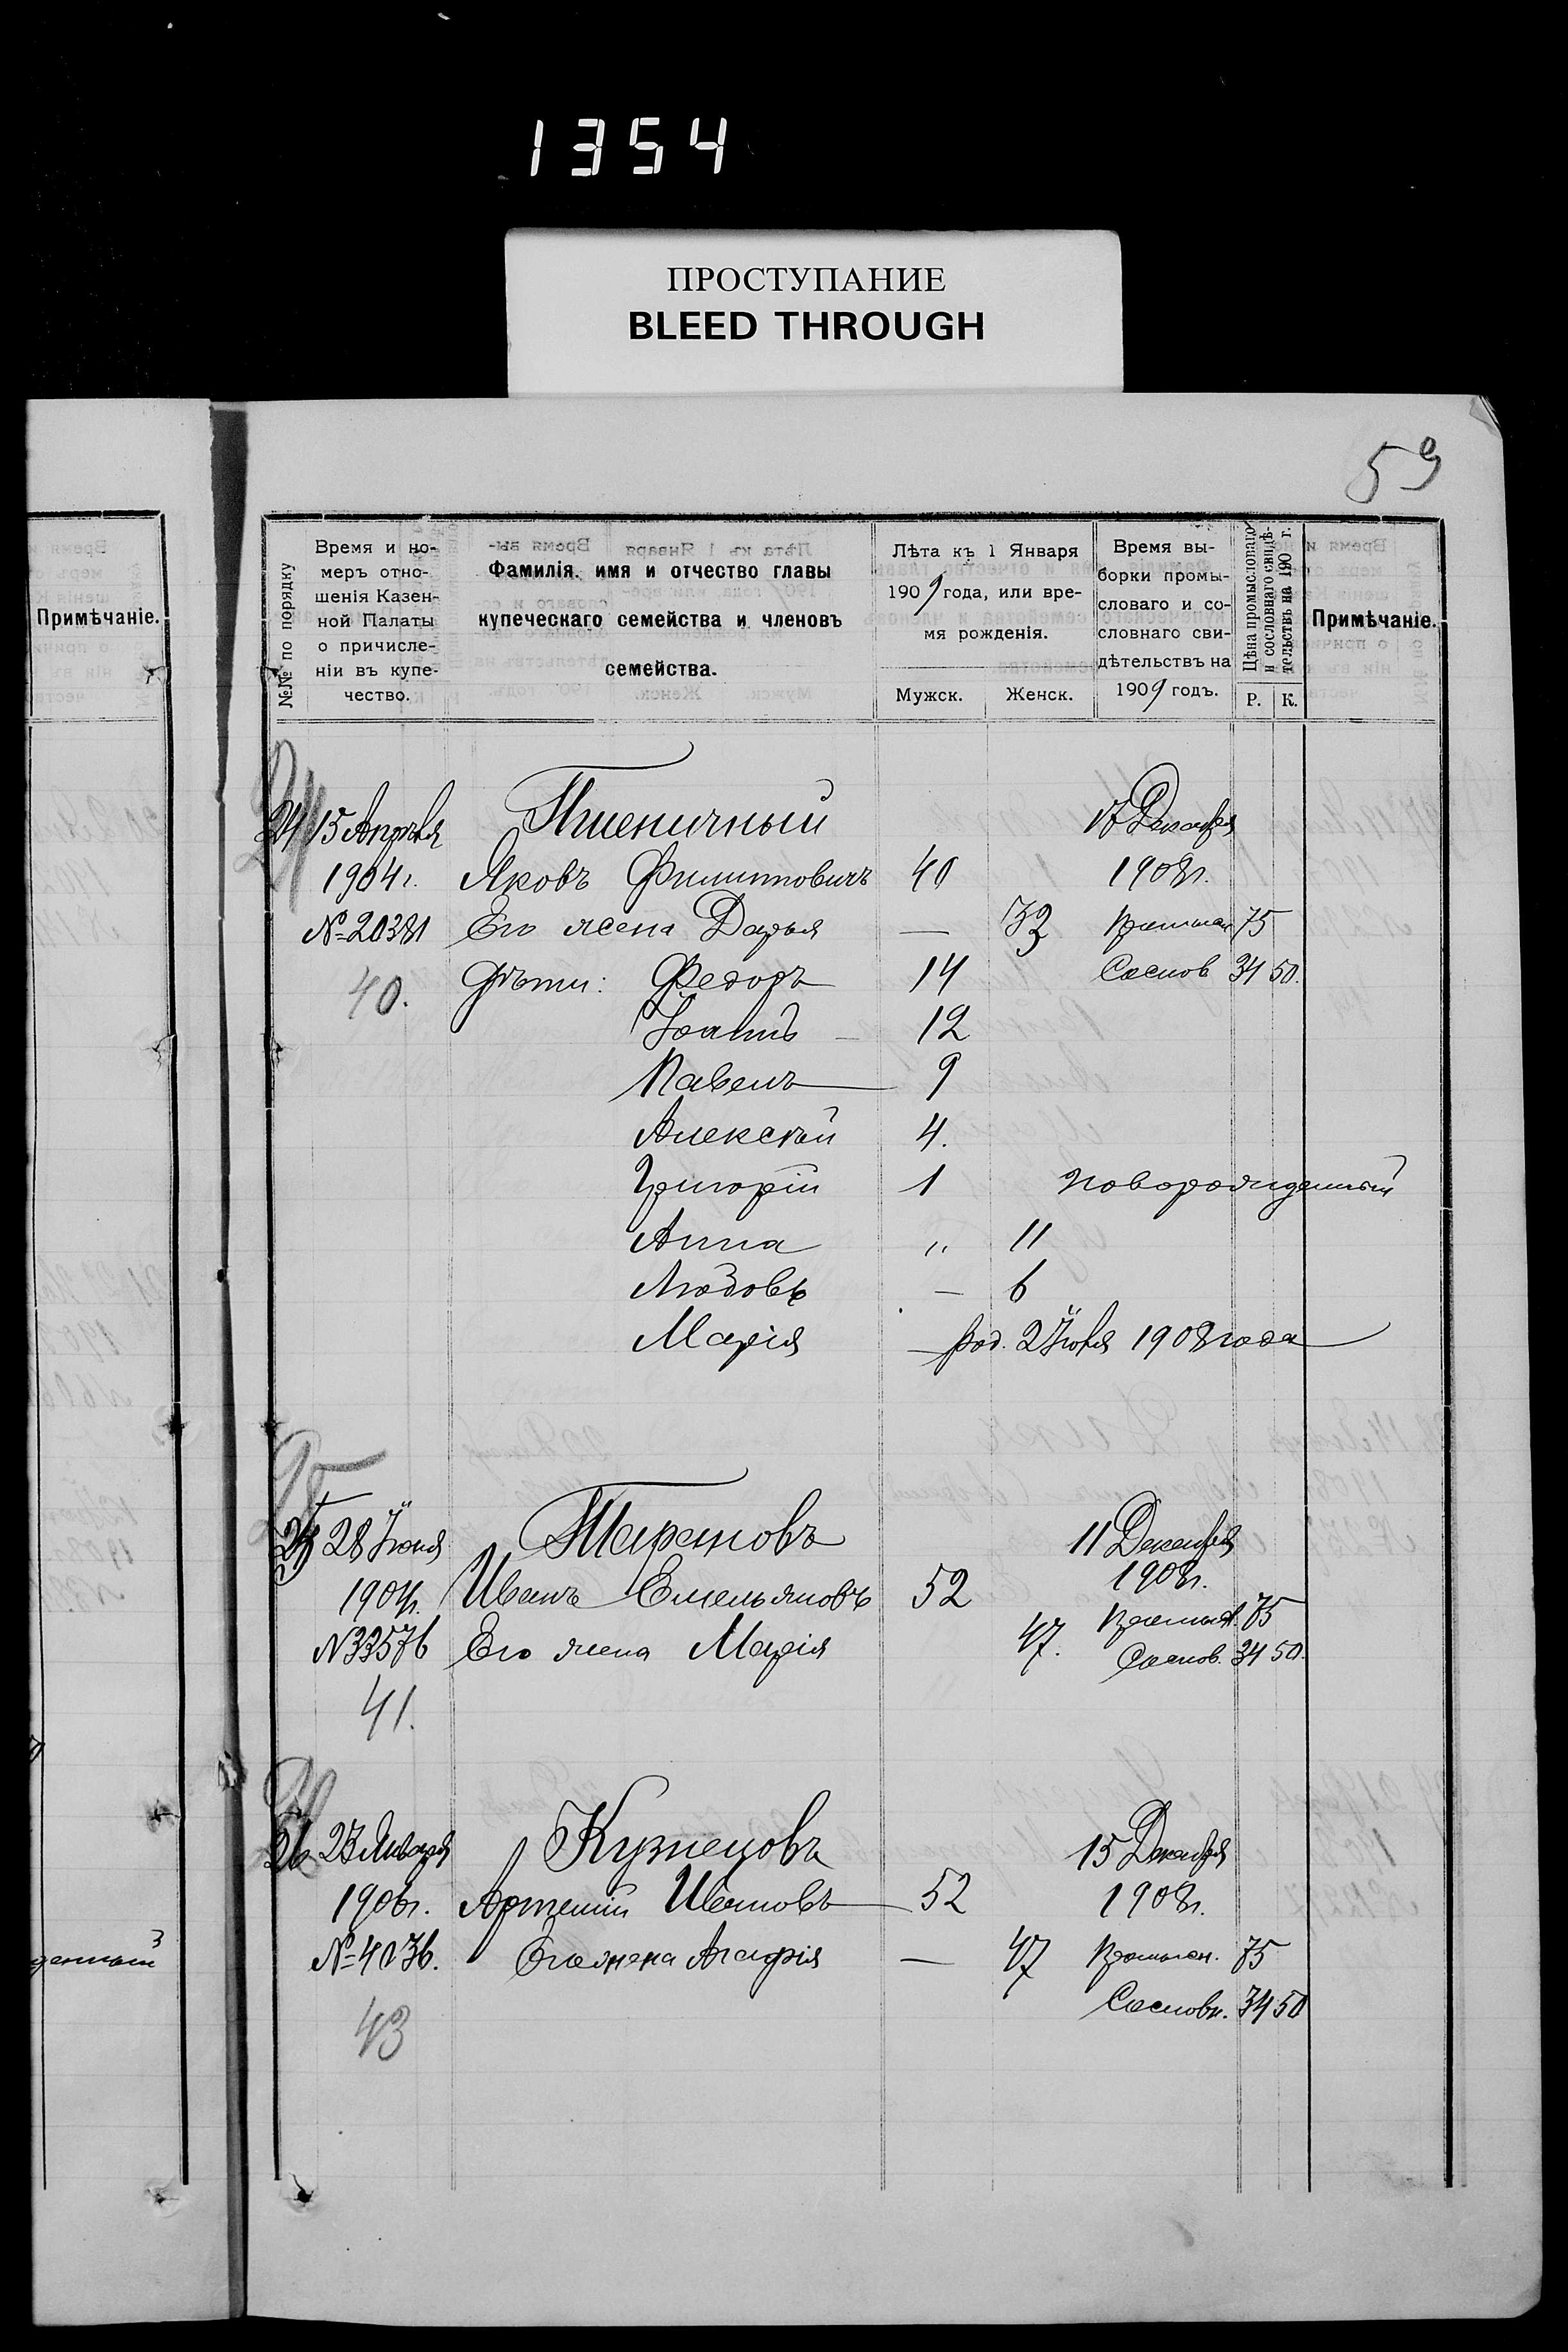 1354
ПРОСТУПАНИЕ
BLEED THROUGH
59
Примѣчаніе.
№№ по порядку
Время и но-
меръ отно-
шенія Казен-
ной Палаты
о причисле-
ніи въ купе-
чество.
Фамилія, имя и отчество главы
купеческаго семейства и членовъ
семейства.
Лѣта къ 1 Января
1909 года, или вре-
мя рожденія.
Мужск. Женск.
Время вы-
борки промы-
словаго и со-
словнаго сви-
дѣтельствъ на
1909 годъ.
Цѣна промысловаго
и сословнаго свидѣ-
тельствъ на 190 г.
Р. К.
Примѣчаніе.
24 15 Апрѣля Пшеничный 17 Декабря
1904 г. Яковъ Филипповичъ 40 1908 г.
№ 20381 Его жена Дарья — 32 75
40. Дѣти: Федоръ 14 Сослов 34 50.
Іоаннъ — 12
Павелъ 9
Алексѣй 4.
Григорій 1 новорожденный
Анна " 11
Любовь — 6
Марія — род. 2 1908 года
25 28 Іюня Шарановъ 11 Декабря
1904 г. Иванъ Емельяновъ 52 1908 г.
N 33576 Его жена Марія 47. 75
41. Сослов. 34 50.
26 23 Января Кузнецовъ 15 Декабря
1906 г. Артемій Ивановъ 52 1908 г.
№ 4036. Его жена Агафія — 47 Промысл. 75
43 Сословн. 34 50
денный